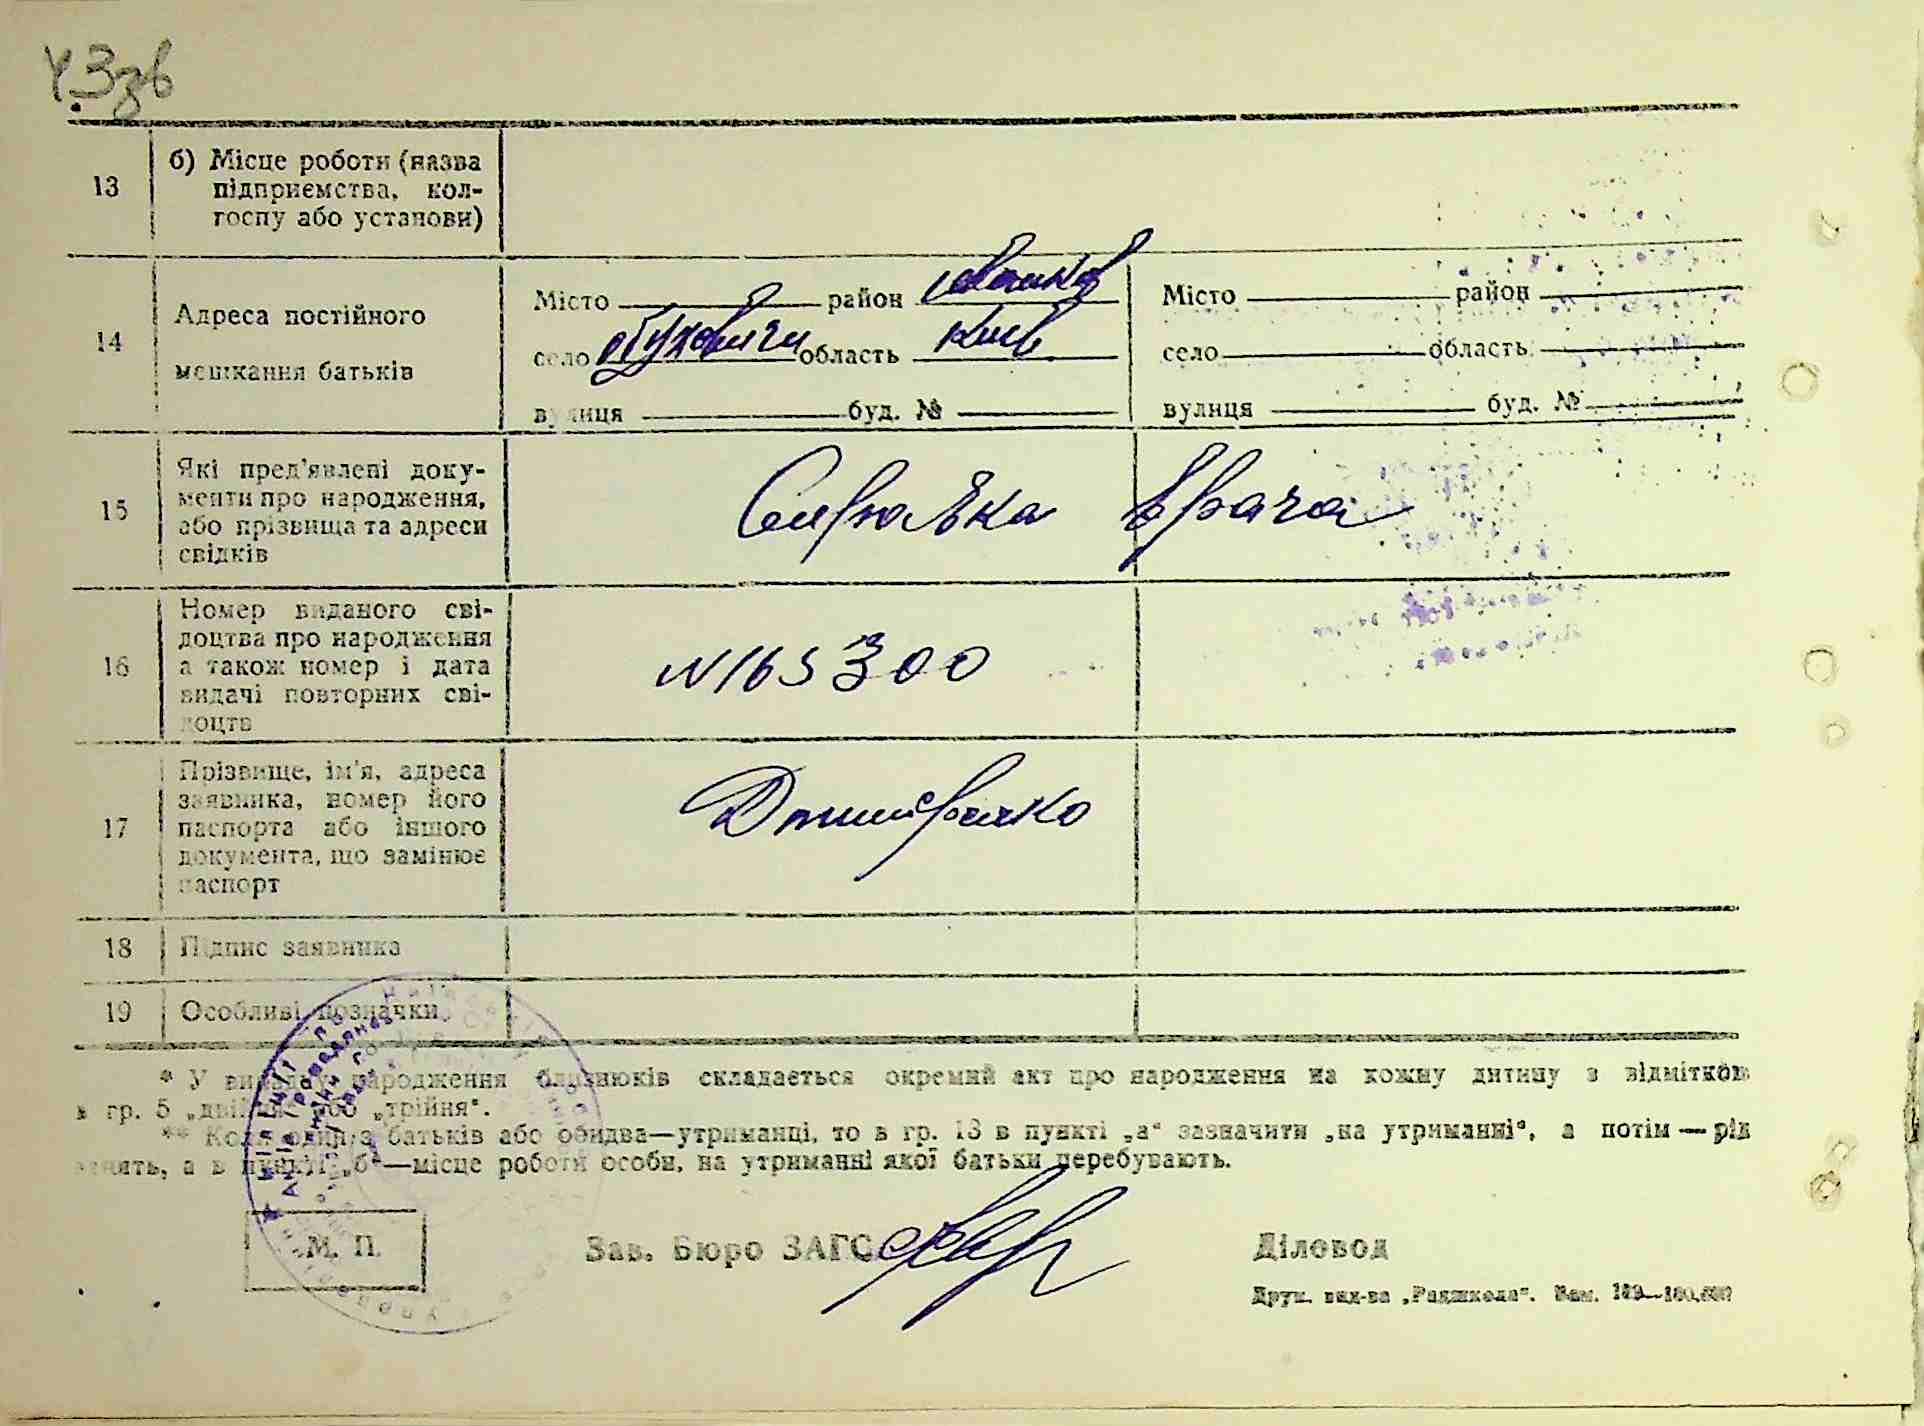 43зв
13
б) Місце роботи (назва
підприємства, кол-
госпу або установи)
14
Адреса постійного
мешкання батьків
Місто район
село Обуховичи область Киев
вулиця буд. №
Місто район
село область
вулиця буд. №
15
Які пред'явлені доку-
менти про народження,
або прізвища та адреси
свідків
Справка врача
16
Номер виданого сві-
доцтва про народження
а також номер і дата
видачі повторних сві-
доцтв
N165300
17
Прізвище, ім'я, адреса
заявника, номер його
паспорта або іншого
документа, що замінює
паспорт
18
Підпис заявника
19
Особливі позначки
* У випадку народження близнюків складається окремий акт про народження на кожну дитину з відміткою
в гр. 5 „двійня" або „трійня".
** Коли один з батьків або обидва—утриманці, то в гр. 13 в пункті „а" зазначити „на утриманні", а потім — рід
занять, а в пункті „б"—місце роботи особи, на утриманні якої батьки перебувають.
М. П.
Зав. Бюро ЗАГС
Діловод
Друк. вид-ва „Радшкола". Зам.